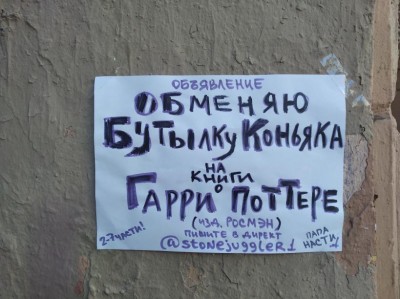 ОБЪЯВЛЕНИЕ
ОБМЕНЯЮ
БУТЫЛКУ КОНЬЯКА
НА
КНИГИ
О
ГАРРИ ПОТТЕРЕ
(ИЗД. РОСМЭН)
ПИШИТЕ В ДИРЕКТ
@stonejuggler1
2-7 ЧАСТИ!
ПАПА
НАСТИ